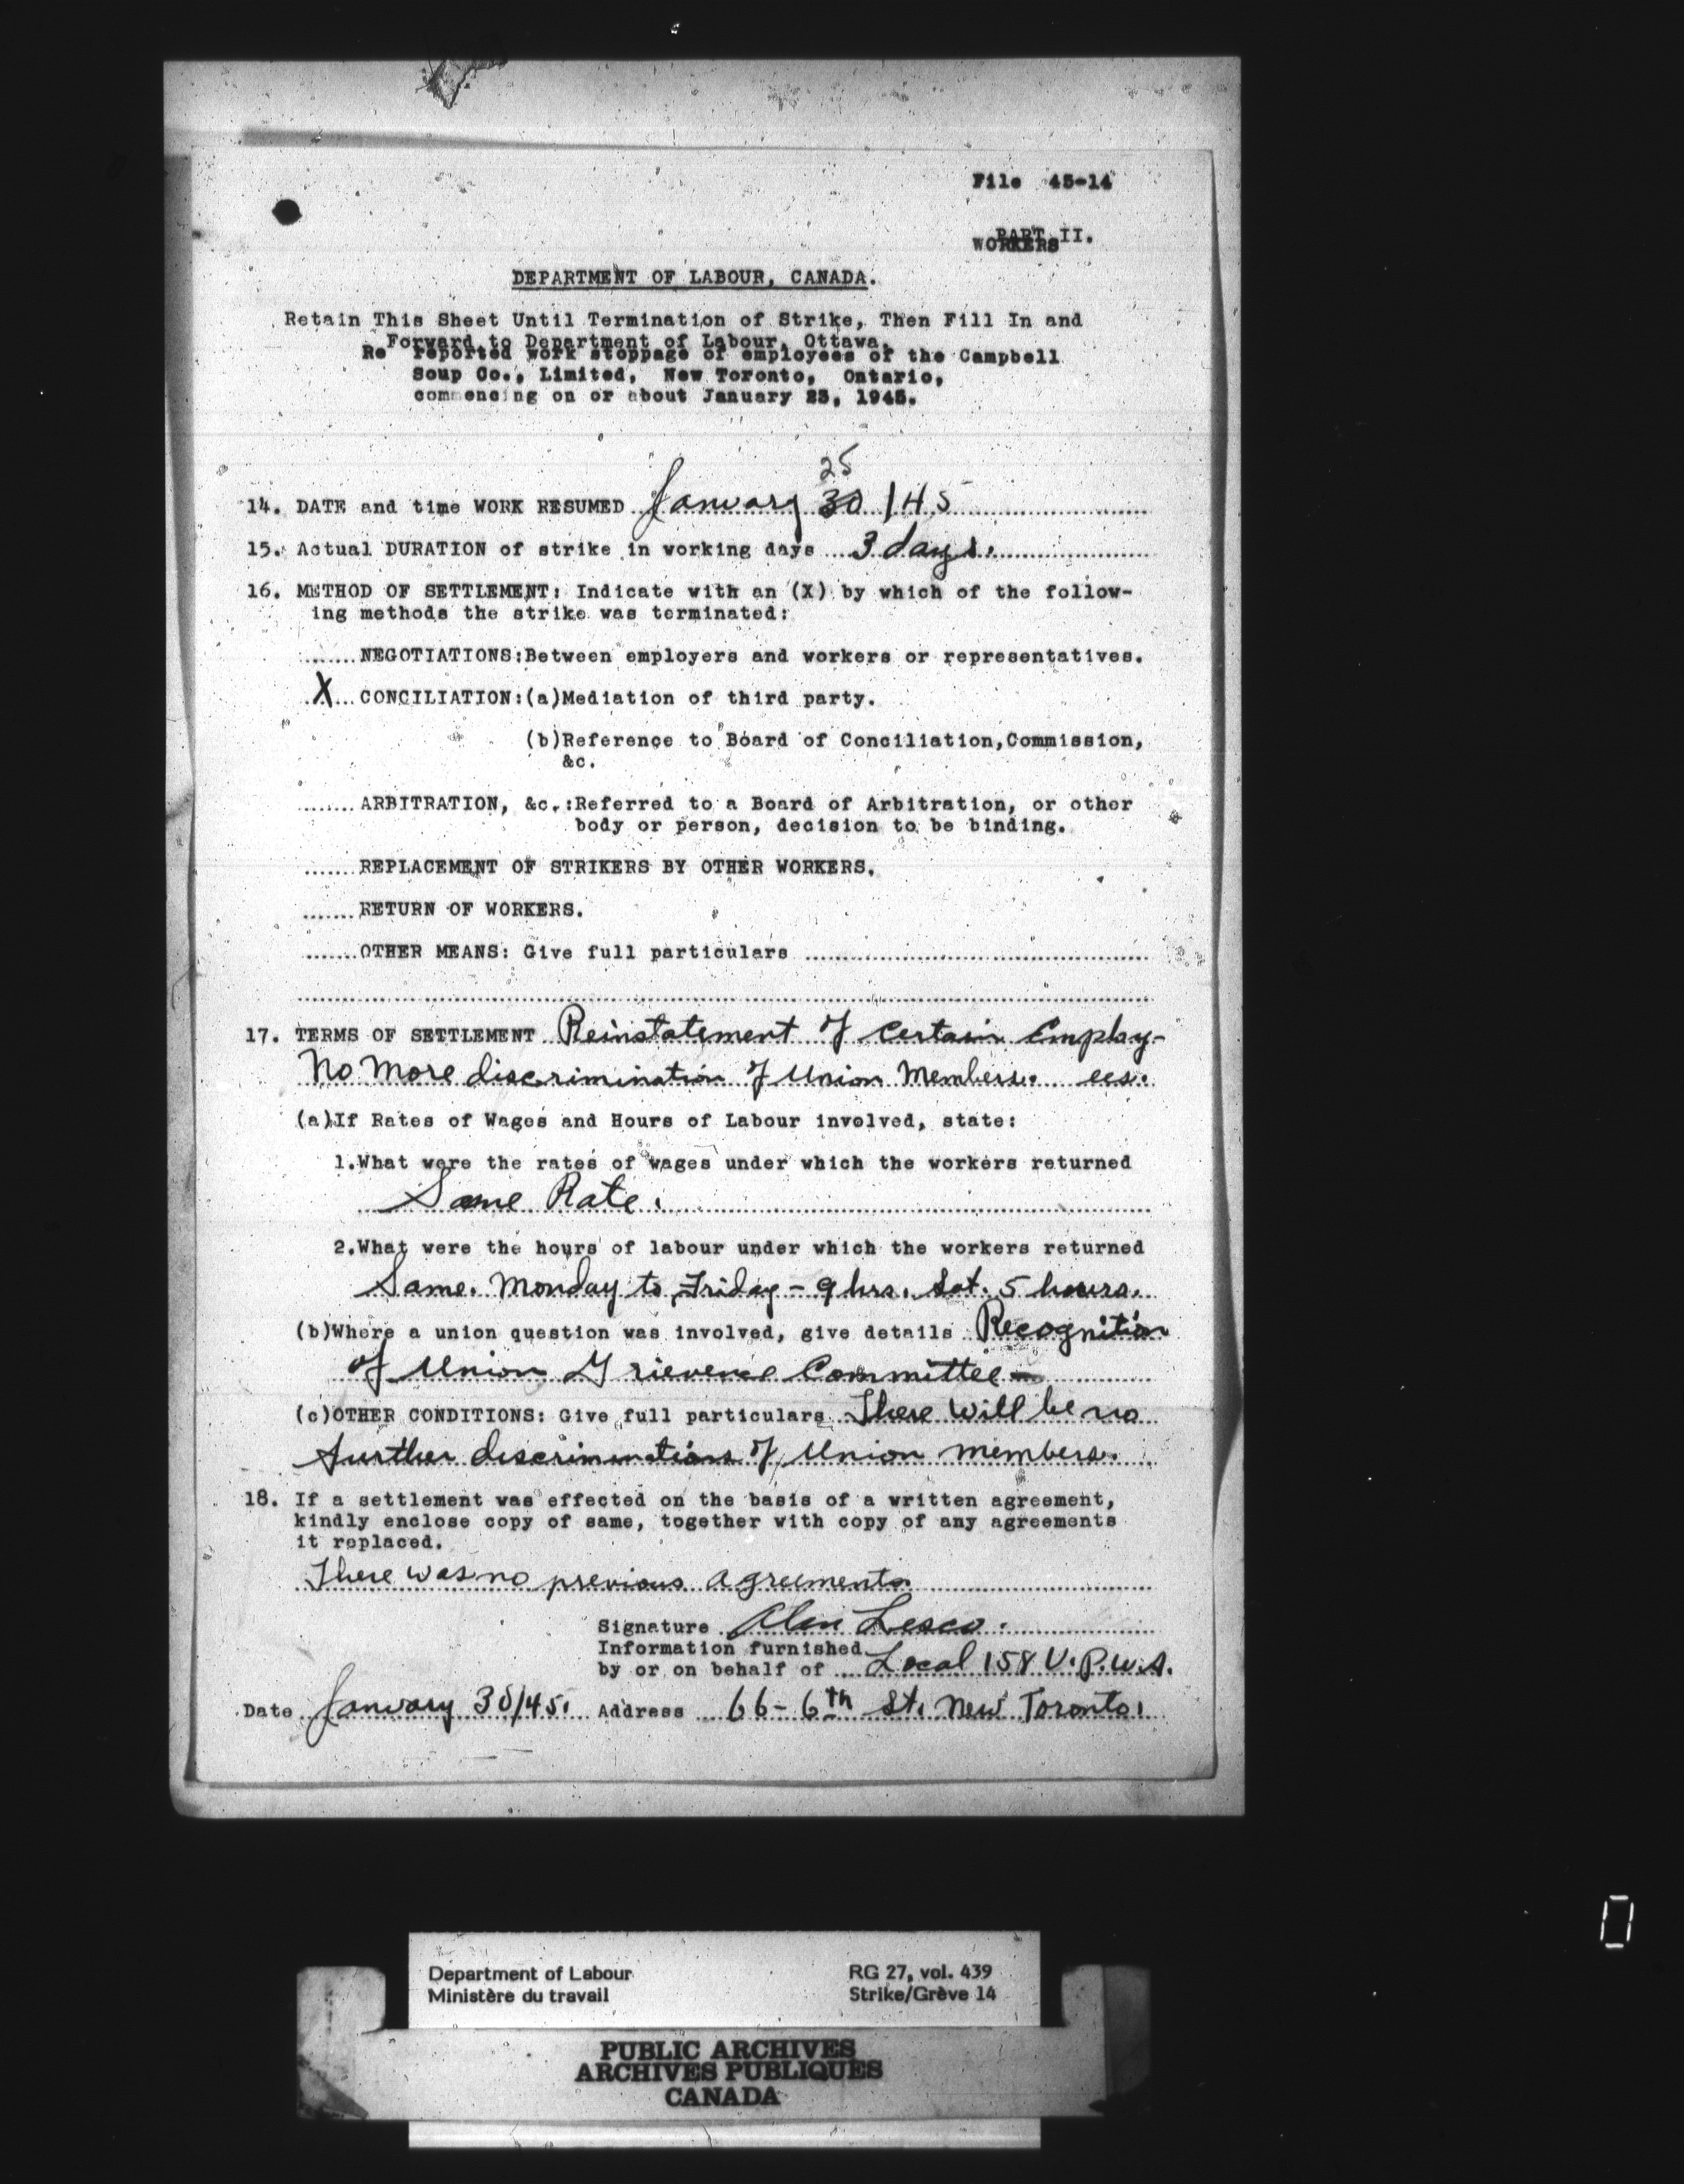 File 45-14
PART II.
WORKERS
DEPARTMENT OF LABOUR, CANADA.
Retain This Sheet Until Termination of Strike, Then Fill In and
Forward to Department of Labour, Ottawa.
Re reported work stoppage of employees of the Campbell
Soup Co., Limited, New Toronto, Ontario,
commencing on or about January 23, 1945.
25
14. DATE and time WORK RESUMED January 30/45
15. Actual DURATION of strike in working days 3 days.
16. METHOD OF SETTLEMENT: Indicate with an (X) by which of the follow-
ing methods the strike was terminated:
.......NEGOTIATIONS:Between employers and workers or representatives.
X CONCILIATION:(a)Mediation of third party.
(b)Reference to Board of Conciliation,Commission,
&c.
.......ARBITRATION, &c.:Referred to a Board of Arbitration, or other
body or person, decision to be binding.
.......REPLACEMENT OF STRIKERS BY OTHER WORKERS.
.......RETURN OF WORKERS.
.......OTHER MEANS: Give full particulars
17. TERMS OF SETTLEMENT Reinstatement of Certain Employ-
No More discrimination of Union Members. ees.
(a)If Rates of Wages and Hours of Labour involved, state:
1.What were the rates of wages under which the workers returned
Same Rate.
2.What were the hours of labour under which the workers returned
Same. Monday to Friday - 9 hrs. Sat. 5 hours.
(b)Where a union question was involved, give details Recognition
of Union Grievence Committee -
(c)OTHER CONDITIONS: Give full particulars There will be no
further discriminations of Union members.
18. If a settlement was effected on the basis of a written agreement,
kindly enclose copy of same, together with copy of any agreements
it replaced.
There was no previous agreements.
Signature Alan Lesco.
Information furnished
by or on behalf of Local 158 U.P.W.A.
Date January 30/45. Address 66-6th St. New Toronto.
Department of Labour RG 27, vol. 439
Ministère du travail Strike/Grève 14
PUBLIC ARCHIVES
ARCHIVES PUBLIQUES
CANADA
0